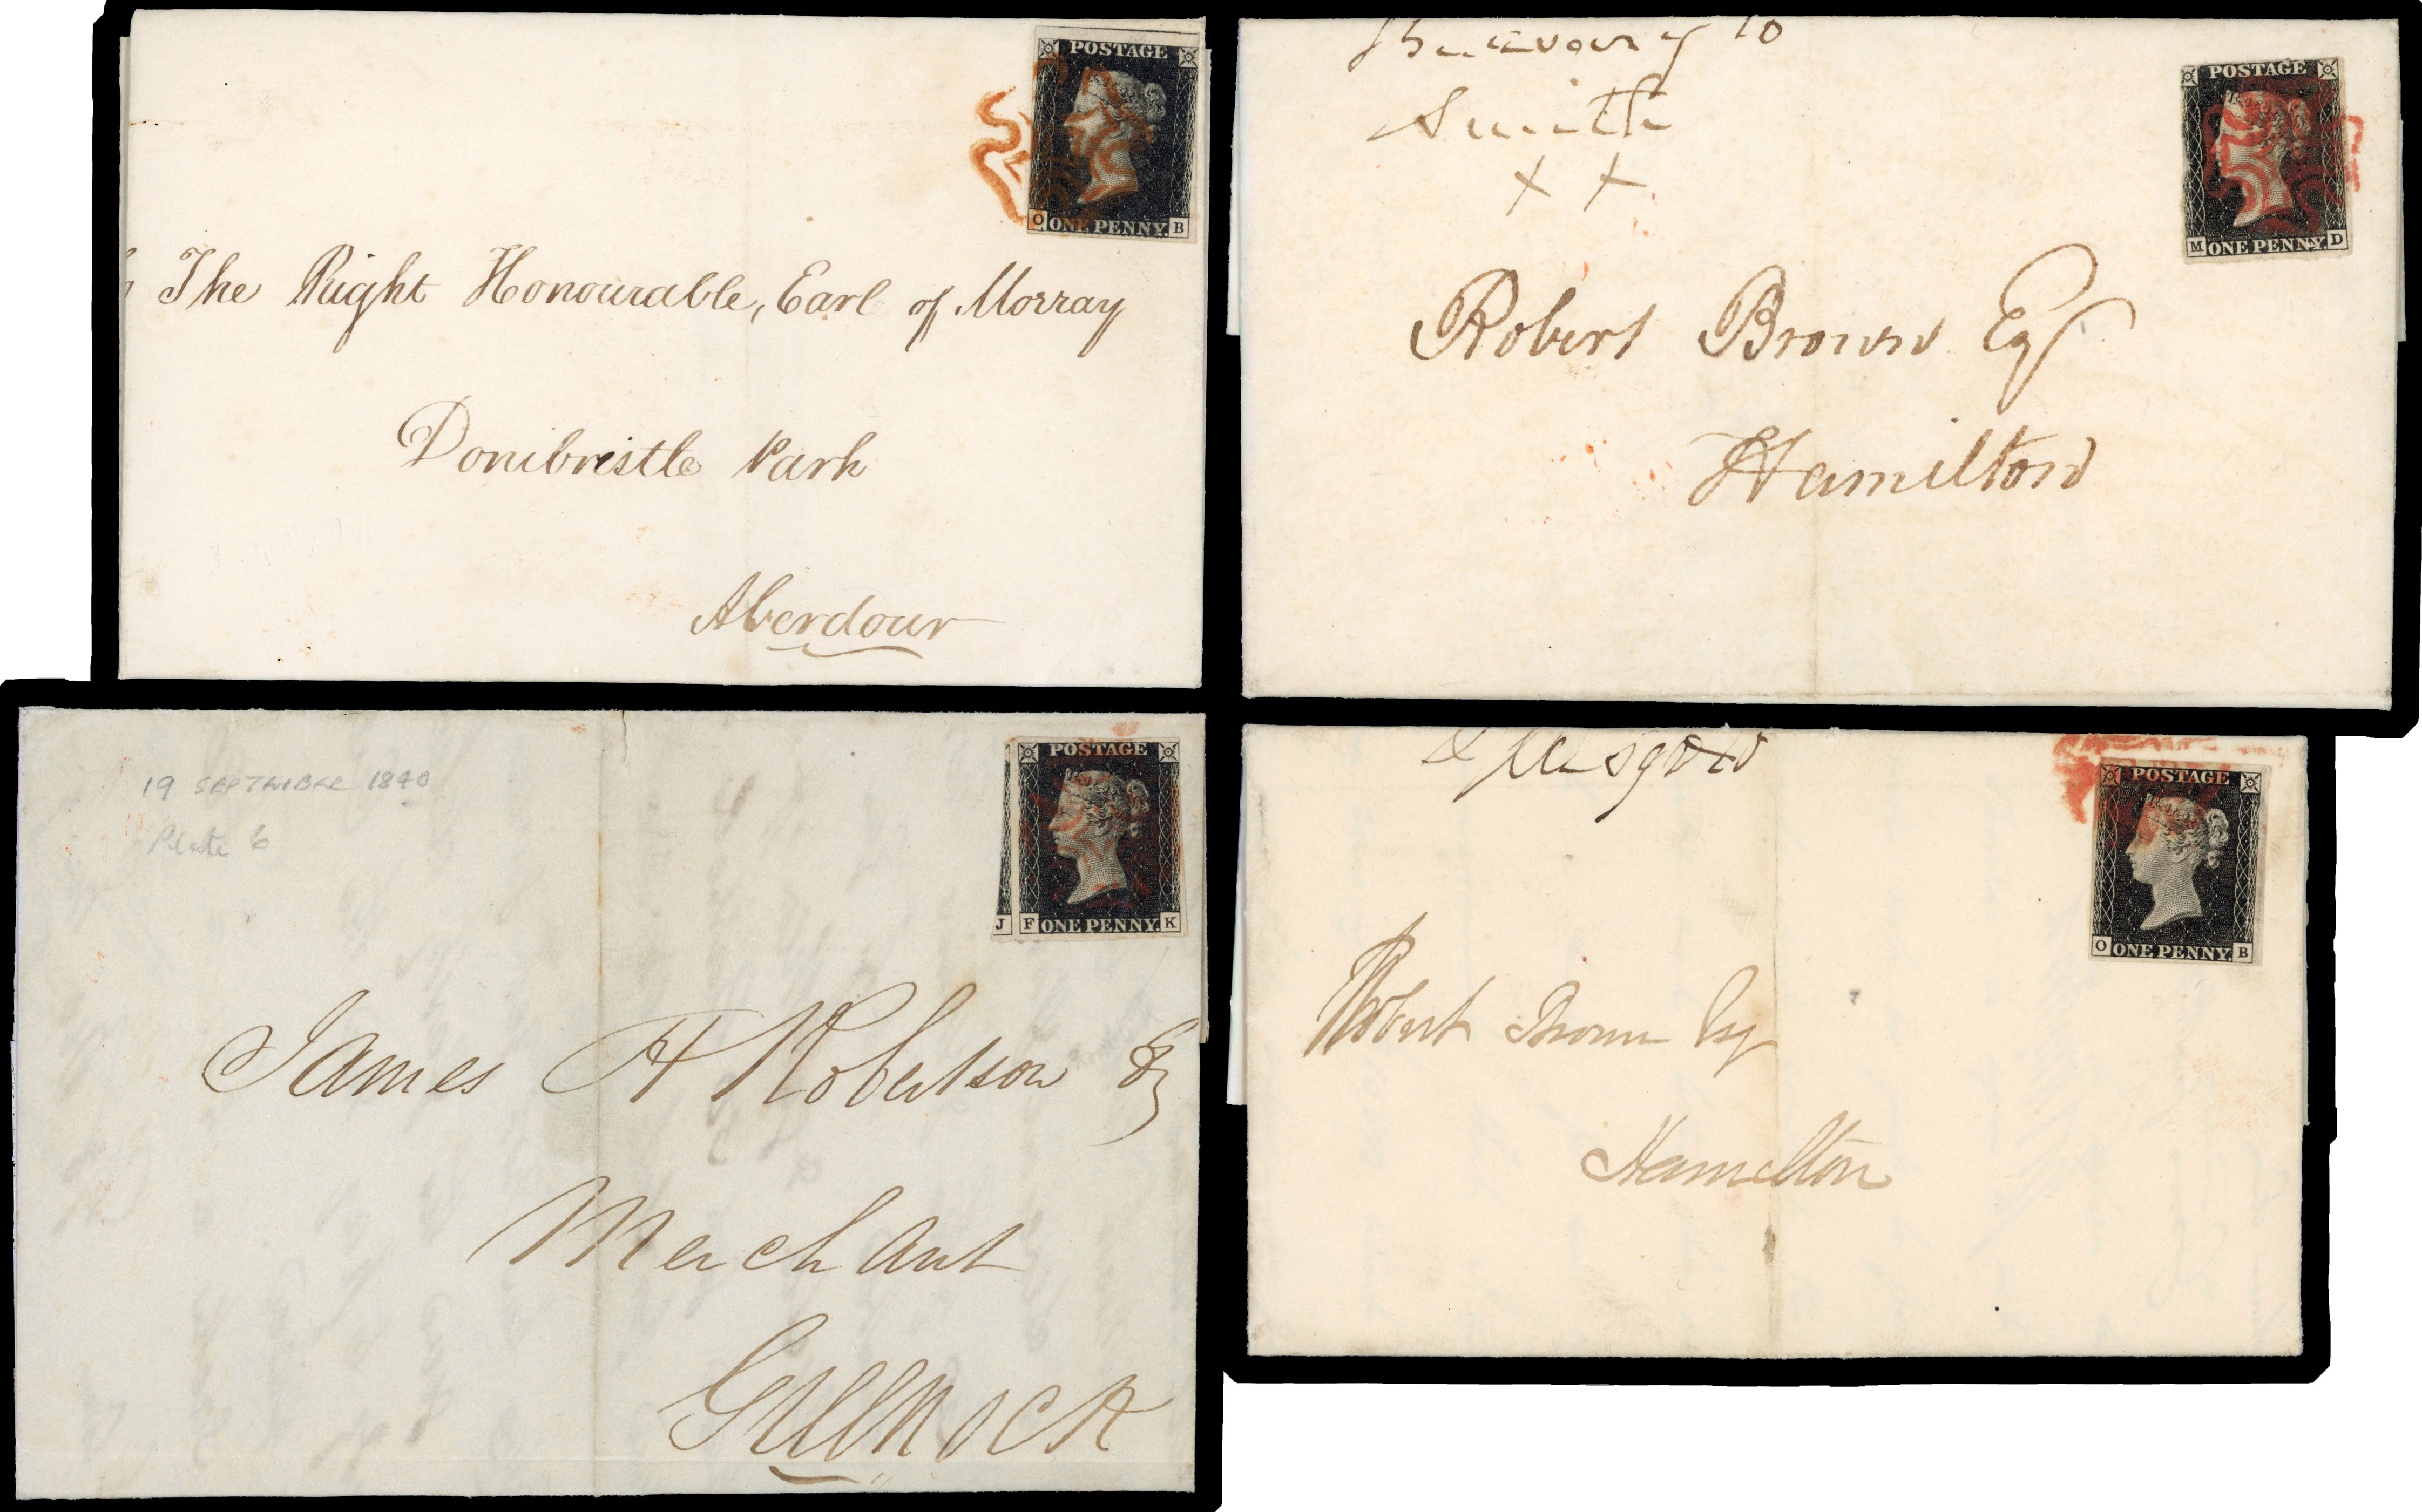 POSTAGE
O ONE PENNY. B
The Right Honourable, Earl of Morray
Donibristle Park
Aberdour
10
Smith
x x
POSTAGE
M ONE PENNY. D
Robert Brown Esq
Hamilton
19 SEPTEMBRE 1840
Plate 6
POSTAGE
J F ONE PENNY. K
James A Robertson Esq
Merchant
Greenock
Glasgow
POSTAGE
O ONE PENNY. B
Robert Brown Esq
Hamilton